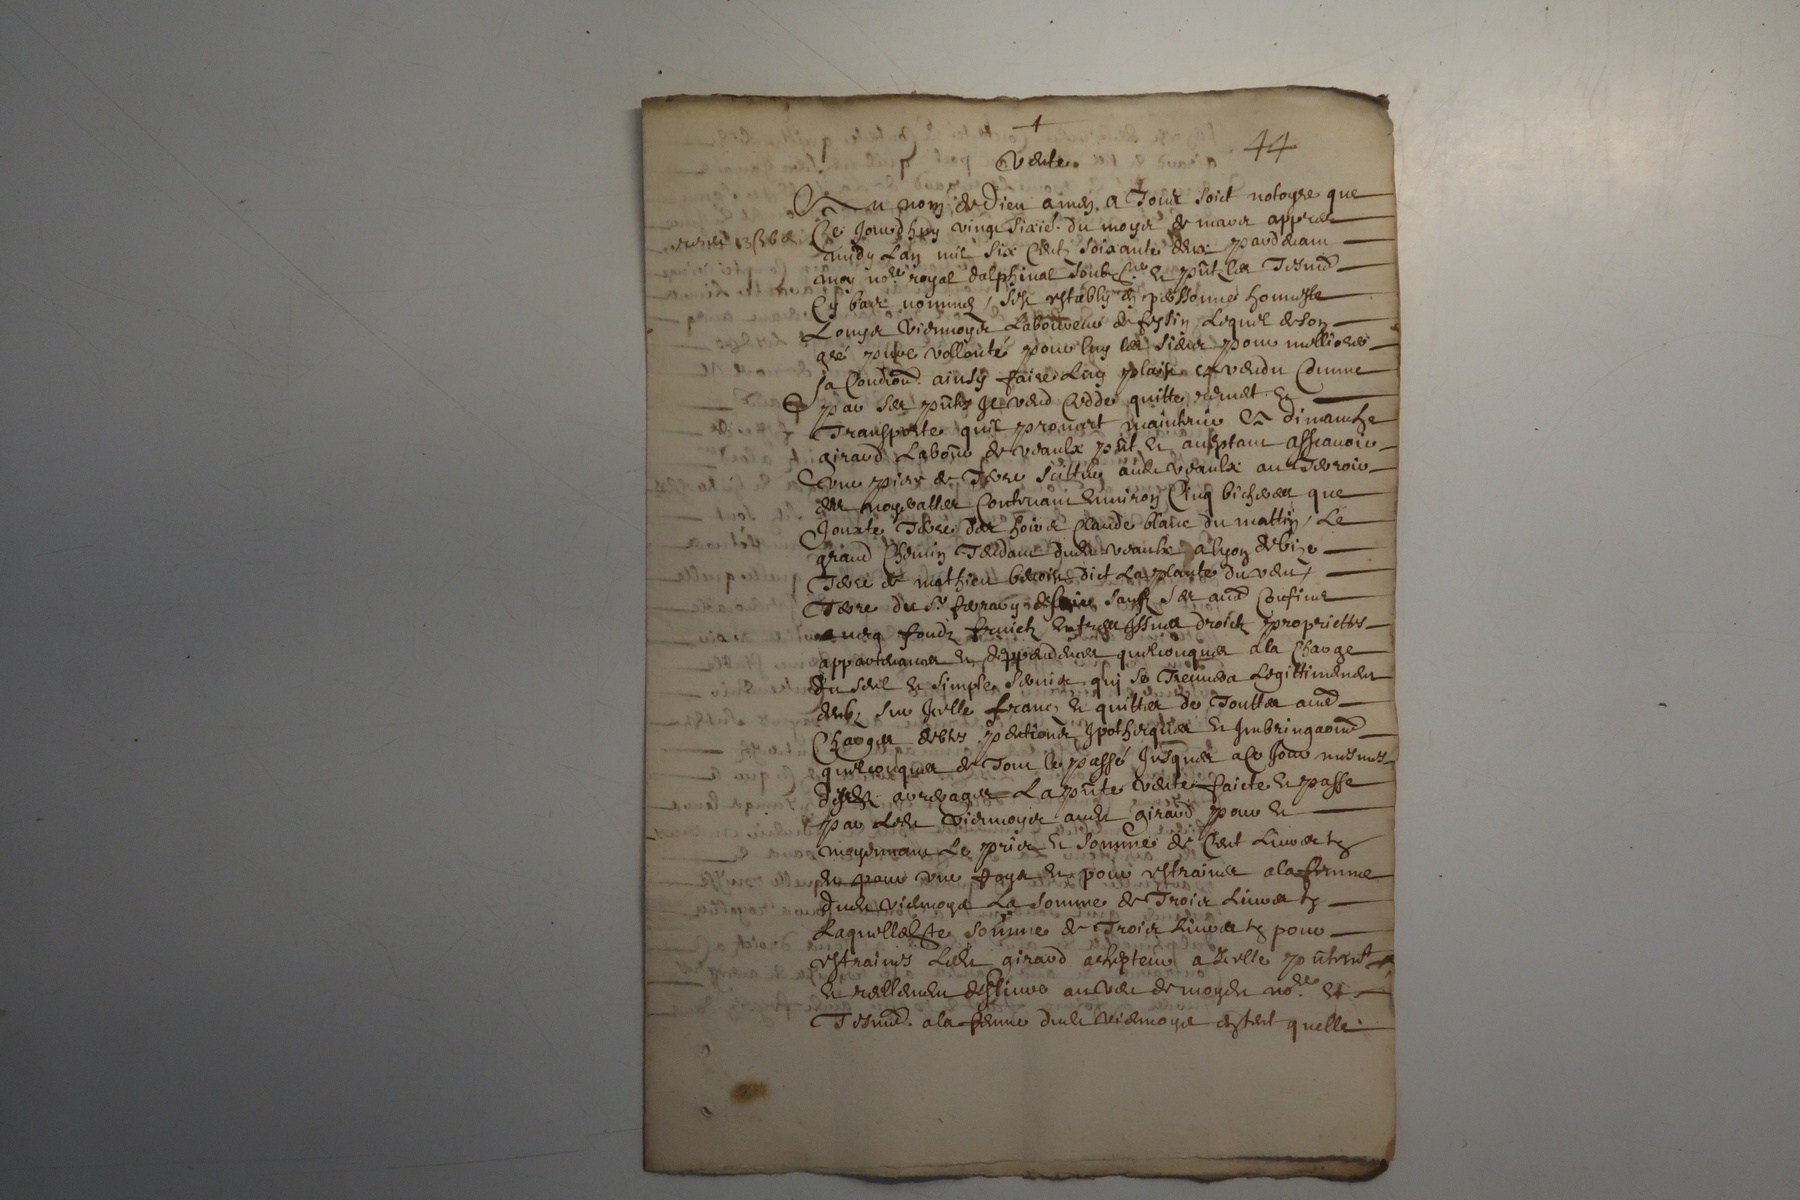 44
Vente.
Au nom de Dieu amen, a Tous soict notoyre que
Ce Jourdhuy vingt sixie. du moys de mars appres
midy Lan mil six Cent soixante deux pardevant
moy no.re royal dalphinal soubz.ne et pñtz les Tesmo.
Cy bas nommes, sest estably en personne honneste
Louys Viermoyes Laboureur de feysin Lequel de son
gré pure vollonté pour luy les siens pour mellioree
sa Condiõn. ainsy faire Luy plaist a vendu Comme
par ses pñtes Il vend Cedde quitte remet et
Transporte quil promect maintenir A dimanche
giraud Labour. de veaulx pñt et acceptant asscavoir
une piece de Terre scittuee aud. veaulx au Terroir
des Contenant environ Cinq bicheres que
Jouxte Terre des hoirs Claude blanc du mattin, Le
grand Chemin Tendant dud. veaulx a lyon de bize
Terre de mathieu benoist dict La plante du vent,
Terre du s.r sauf ses aud. Confins
avecq fondz fruictz droictz proprietes
appartenances et deppendences quelconques a la Charge
du seul et simple servis qui se Treuvera Legittimement
deub sur Icelle franc et quitte de Touttes aud.
Charges debtes pentions Ipotheques et Imbringaõn
quelconques de Tout le passé Jusques a Ce Jour mesmes
desd. arreyages La pñte vente faicte et passe
par Led. Viermoyes aud. giraud pour et
moyennant Le prix et somme de Cent Livres tz
et pour une foys et pour estraines a la femme
dud. viermoyes La somme de Trois Livres tz
Laquelle somme de Trois Livres tz pour
estraines Led. giraud achepteur a Icelle pñtemt
et reellement deslivre au veu de moyd. no.re et
Tesmo. a la femme dud. viermoyes quelle